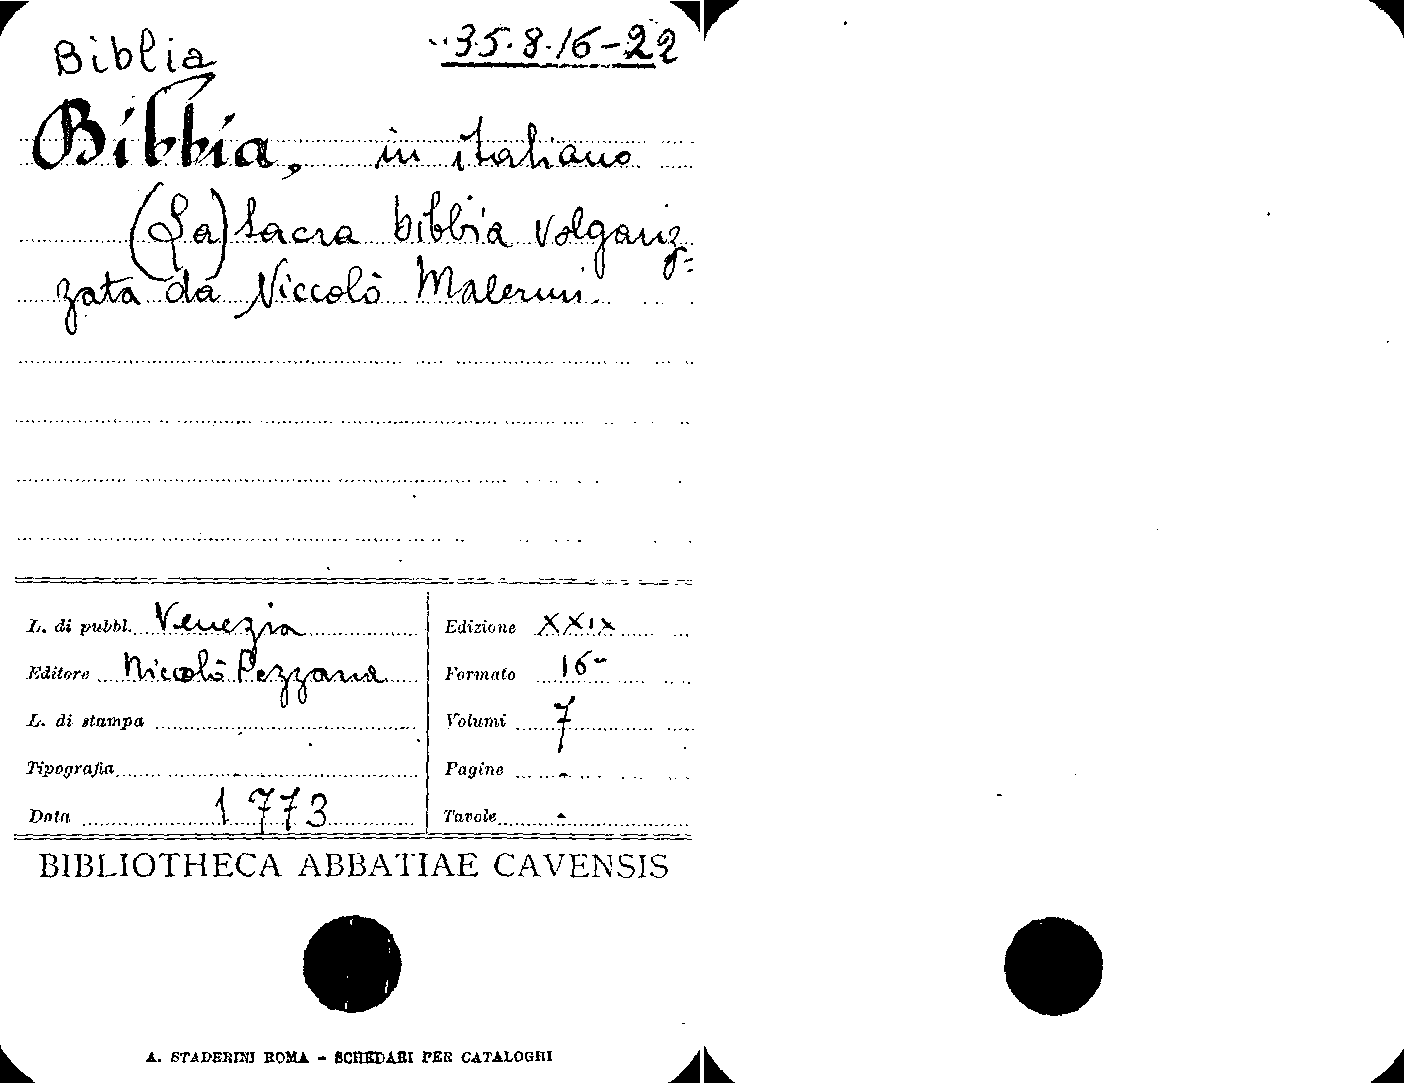 Biblia
35.8.16-22
Bibbia, in italiano
(La) sacra bibbia volgariz=
zata da Niccolò Malermi.
L. di pubbl. Venezia
Editore Niccolò Pezzana
L. di stampa
Tipografia
Data 1773
Edizione XXIX
Formato 16°
Volumi 7
Pagine
Tavole
BIBLIOTHECA ABBATIAE CAVENSIS
A. STADERINI ROMA - SCHEDARI PER CATALOGHI